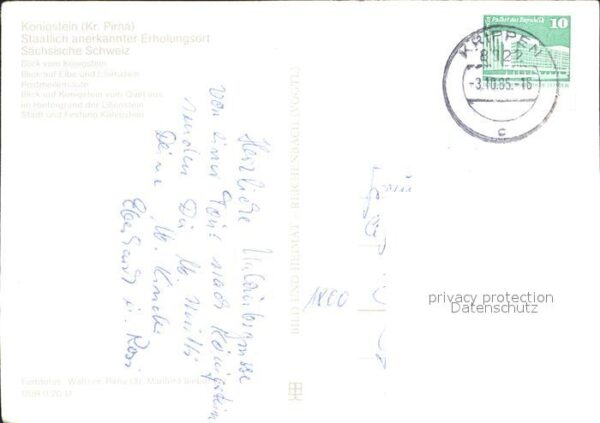 Königstein (Kr. Pirna)
Staatlich anerkannter Erholungsort
Sächsische Schweiz
Blick vom Königstein
Blick auf Elbe und Lilienstein
Postmeilensäule
Blick auf Königstein vom Quirl aus,
im Hintergrund der Lilienstein
Stadt und Festung Königstein
Herzliche Urlaubsgrüsse
von einer Tour nach Königstein
senden Dir lb. Mutti
Deine lb. Kinder
Eberhard u. Rosi
BILD UND HEIMAT REICHENBACH (VOGTL)
Palast der Republik
10
KRIPPEN
8122
-3.10.85.-16
c
1800
privacy protection
Datenschutz
Farbfotos: